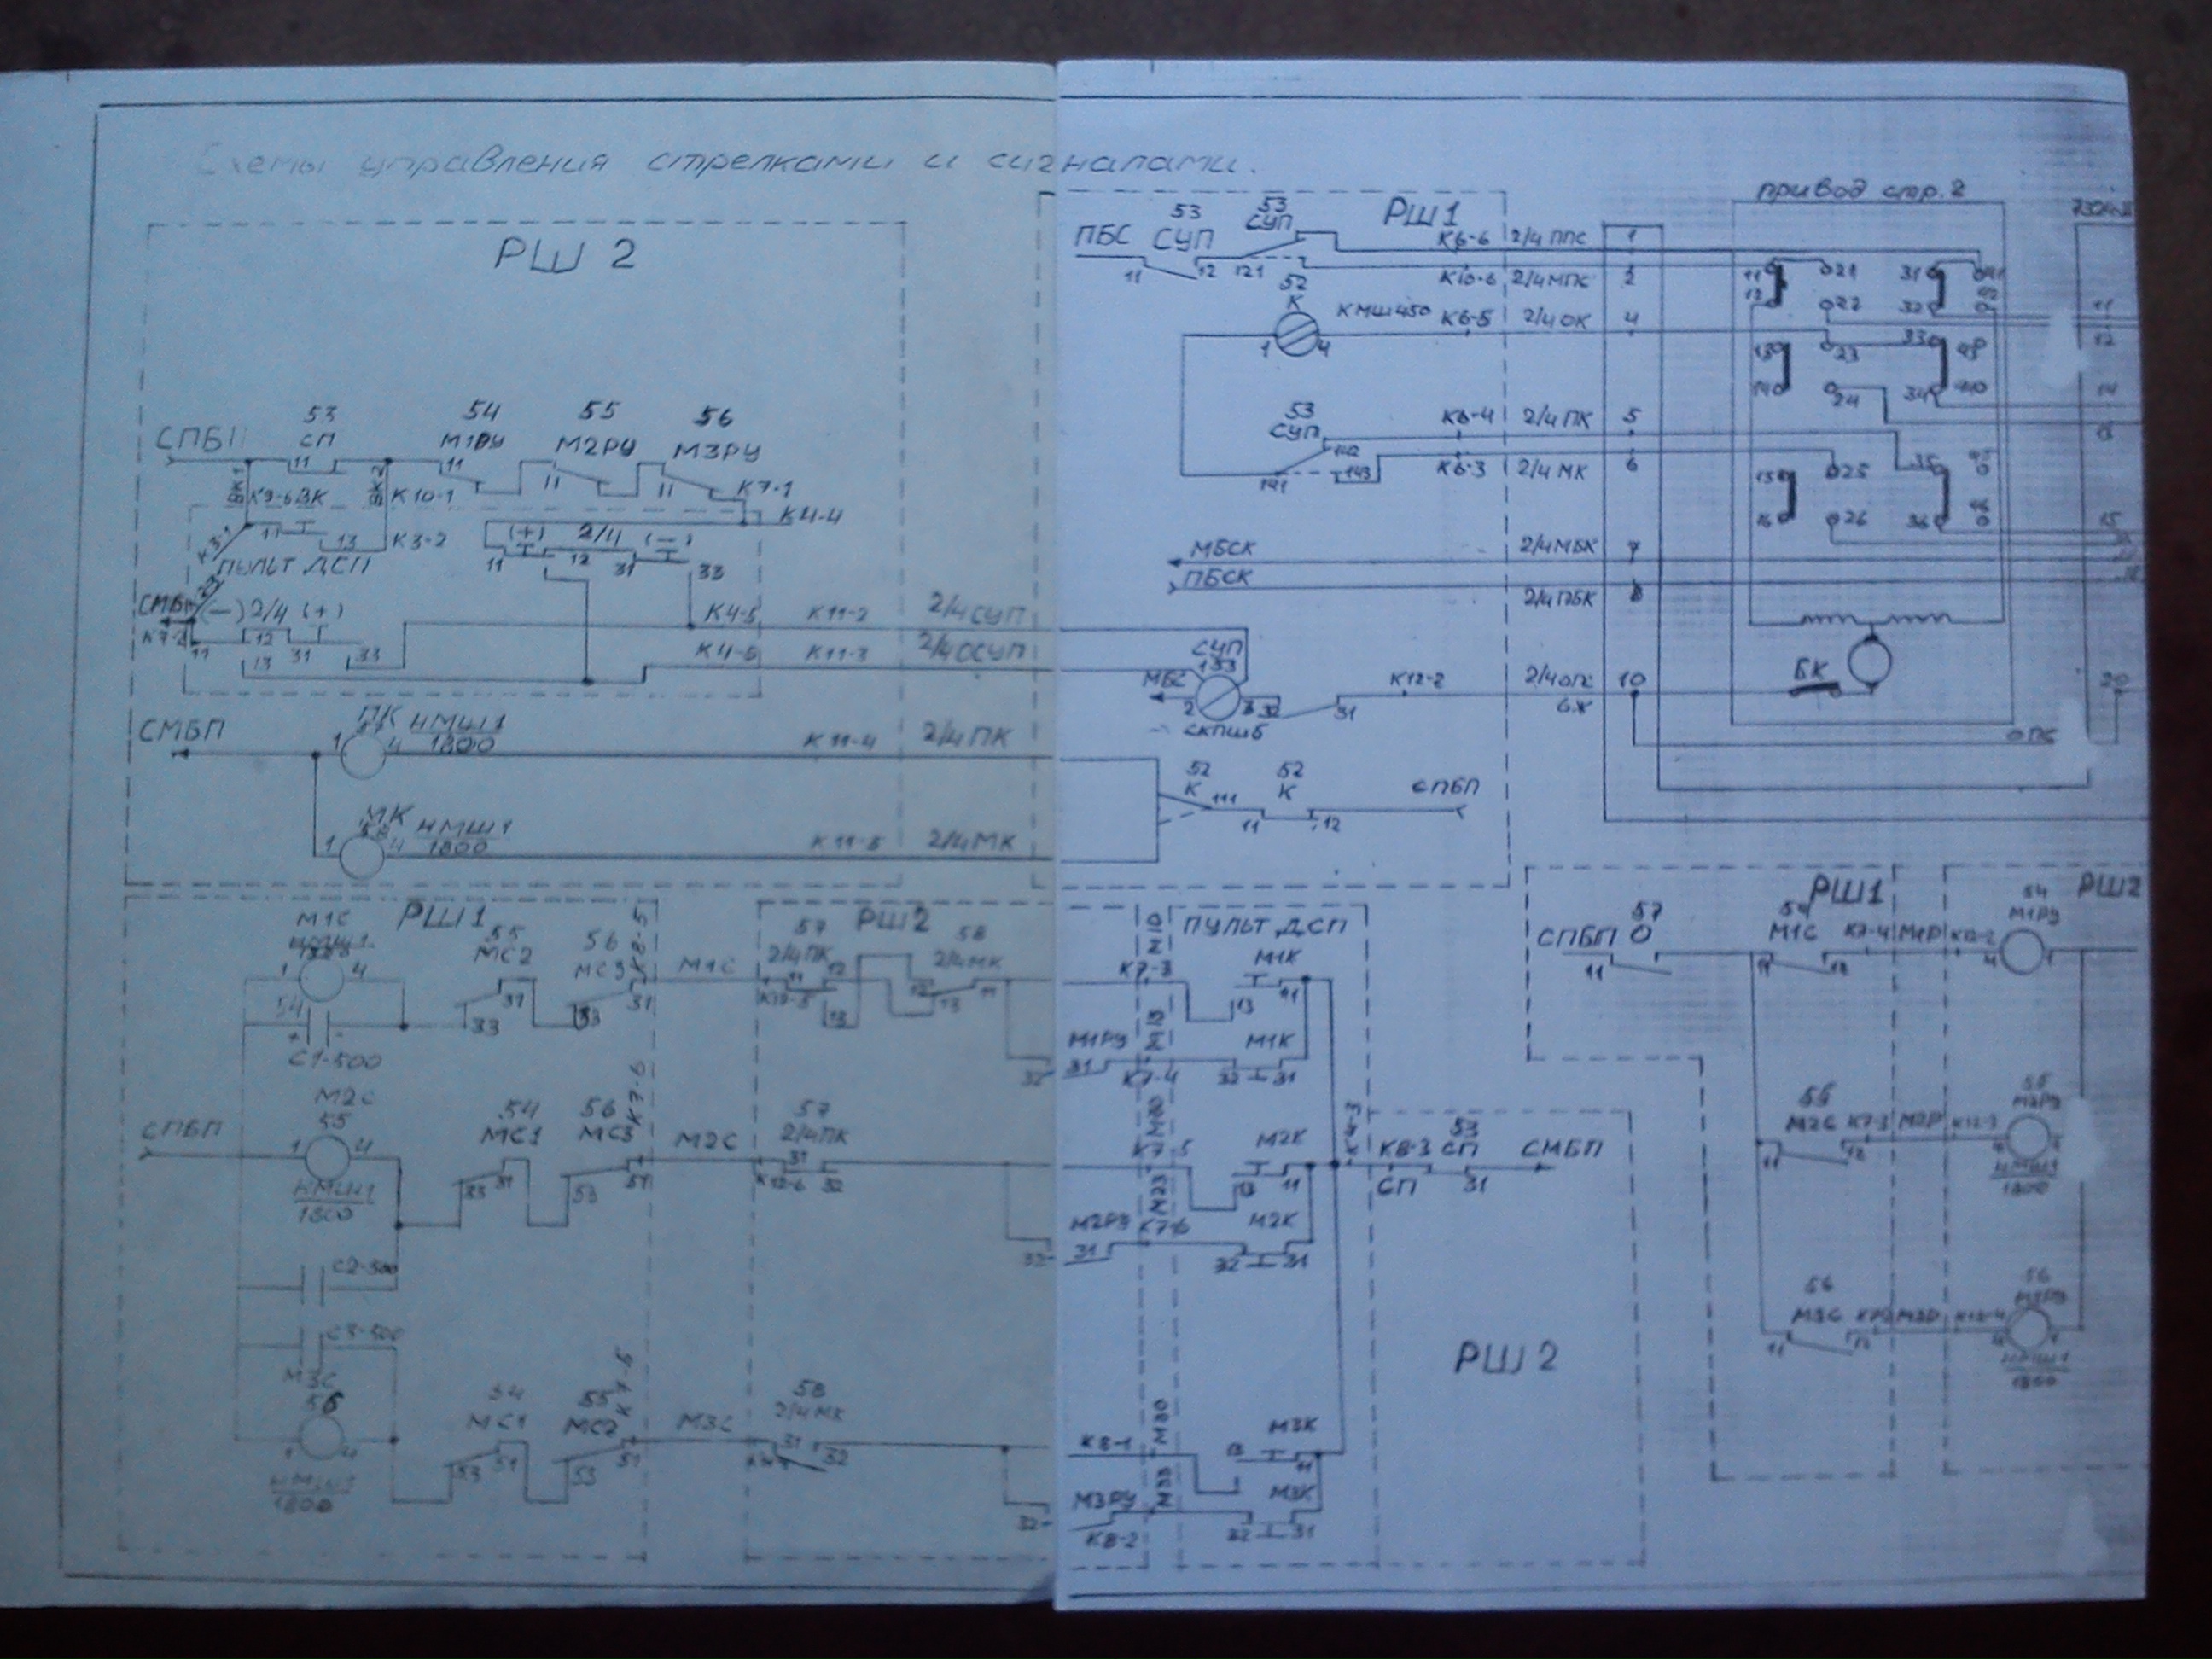 Схемы управления стрелками и сигналами.
РШ 2
РШ1
привод стр. 2
53 53
ПБС СУП СУП
К6-6 2/4 ППС 1
11 12 121
К10-6 2/4 МПС 2
52
К КМШ450 К6-5 2/4 ОК 4
1 4
11 21 31 41
12 22 32 42
13 23 33
14 24 34
53 54 55 56
СП М1РУ М2РУ М3РУ
11 11 11 11
ВК1 К9-6 ВК ВК2 К10-1 К7-1
К4-4
К3-1 11 13 К3-2
(+) 2/4 (-)
11 12 31 33
ПУЛЬТ ДСП
(-) 2/4 (+)
К7-2 11 12 31 33
13
К4-5 К11-2 2/4 СУП
К4-6 К11-3 2/4 ОСУП
53
СУП
142
141 143
К6-4 2/4 ПК 5
К6-3 2/4 МК 6
15 25 35
16 26 36
МБСК 2/4 МБК 7
ПБСК 2/4 ПБК 8
СУП
1 53
МБС
2 3 32 31
СКПШ5
К12-2 2/4 ОПС 10
6Ж
БК
20
ОПС
СМБП ПК НМШ1
1 4 1800
К11-4 2/4 ПК
МК НМШ1
1 4 1800
К11-5 2/4 МК
52 52
К К СПБП
111 11 12
РШ1
М1С
1 4
54
+ -
С1-500
55 56
МС2 МС3 К8-5
31 33 31
М1С
РШ2
57 58
2/4 ПК 2/4 МК
11 12
13 13 11
32
ПУЛЬТ ДСП
М10
К7-3 М1К
13 11
М1РУ М13 М1К
31 К7-4 32 31
М2С
СПБП 55
1 4
КМШ1
1800
С2-500
54 56
МС1 МС3 К7-6
33 31 53 51
М2С
57
2/4 ПК
К12-6 31 32
М20
М2К
11
М23
М2РУ К7-6 М2К
31 32 31
К4-3
К8-3 СП СМБП
СП 31
С3-500
М3С
56
1 4
НМШ1
1800
54 55
МС1 МС2 К7-5
53 51 53 51
М3С
58
2/4 МК
31 32
32
К8-1 М30 М3К
11
М3РУ М33 М3К
К8-2 32 31
РШ 2
РШ1
РШ2
57
СПБП О
11
М1С К7-4 М1Р К12-2
11 12
54
М1РУ
4 1
55
М2С К7-3 М2Р К12-3
11 12
55
М2РУ
НМШ1
1800
56
М3С М3Р К12-4
11 12
56
М3РУ
НМШ1
1800